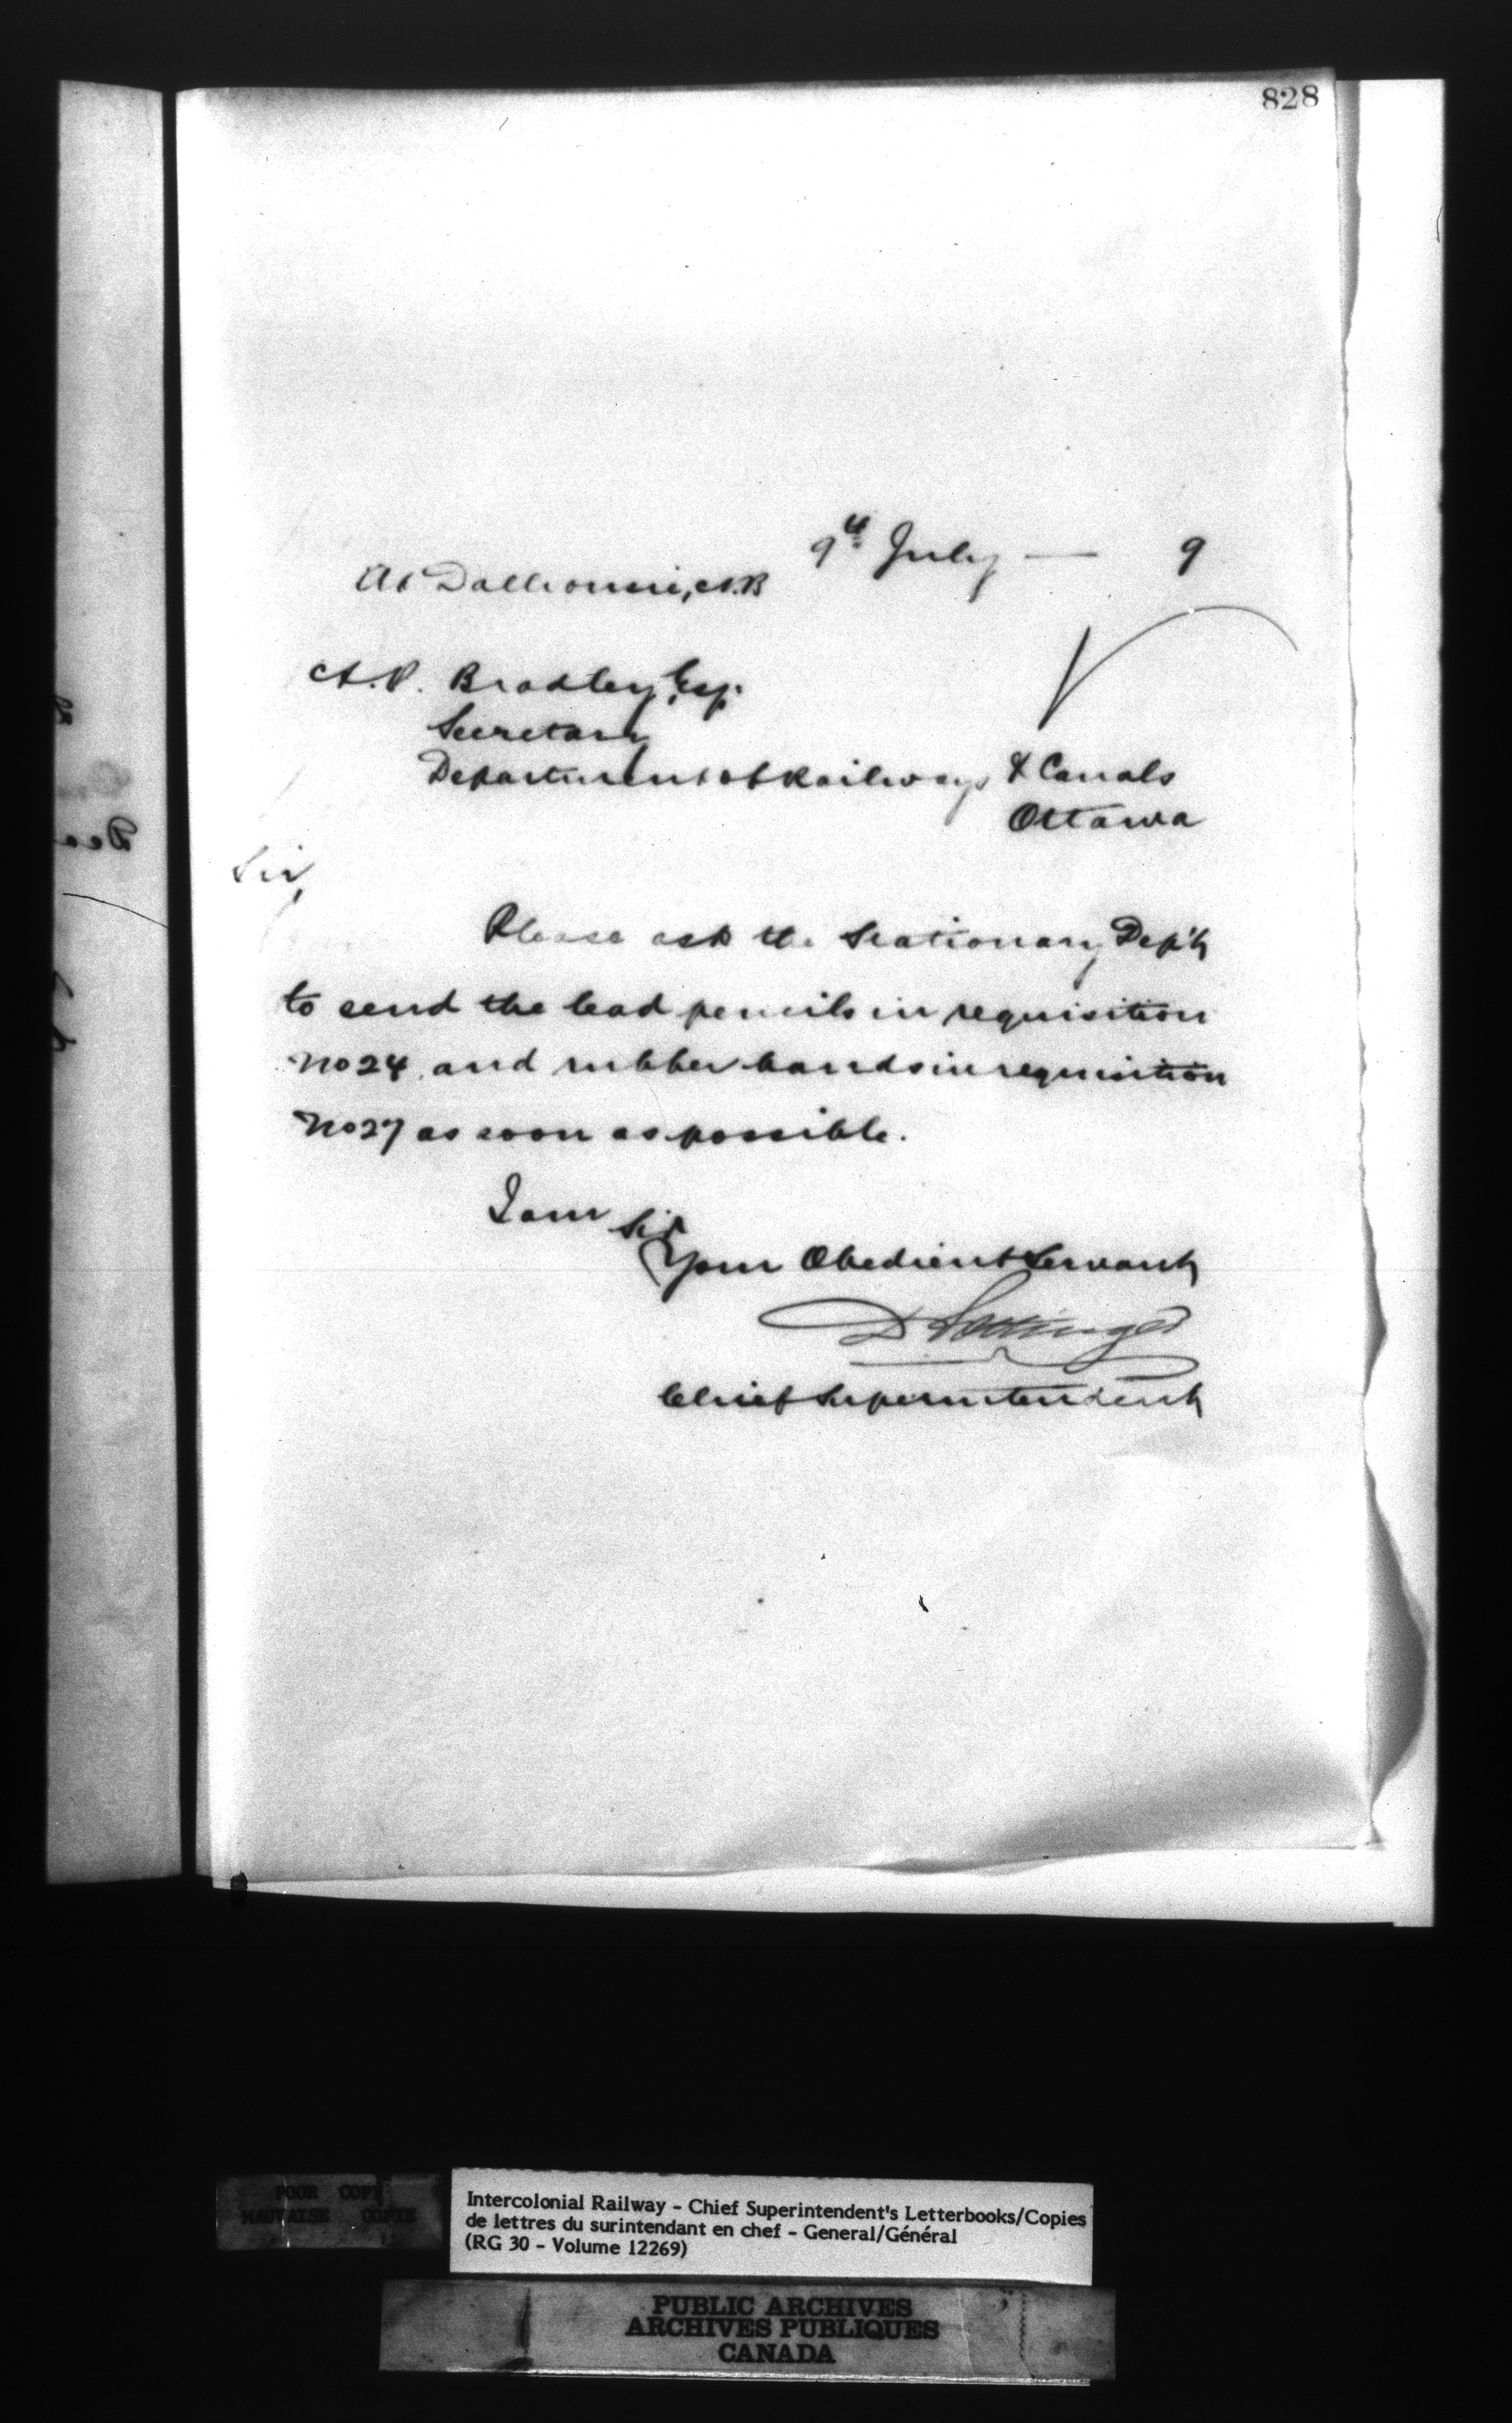 828
9th July — 9
At Dalhousie, N.B
A.P. Bradley, Esq.
Secretary
Department of Railways & Canals
Ottawa
Sir,
Please ask the Stationary Dep't
to send the lead pencils in requisition
No 24 and rubber bands in requisition
No 27 as soon as possible.
I am Sir
Your Obedient Servant
D Pottinger
Chief Superintendent
POOR COPY
MAUVAISE COPIE
Intercolonial Railway - Chief Superintendent's Letterbooks/Copies
de lettres du surintendant en chef - General/Général
(RG 30 - Volume 12269)
PUBLIC ARCHIVES
ARCHIVES PUBLIQUES
CANADA